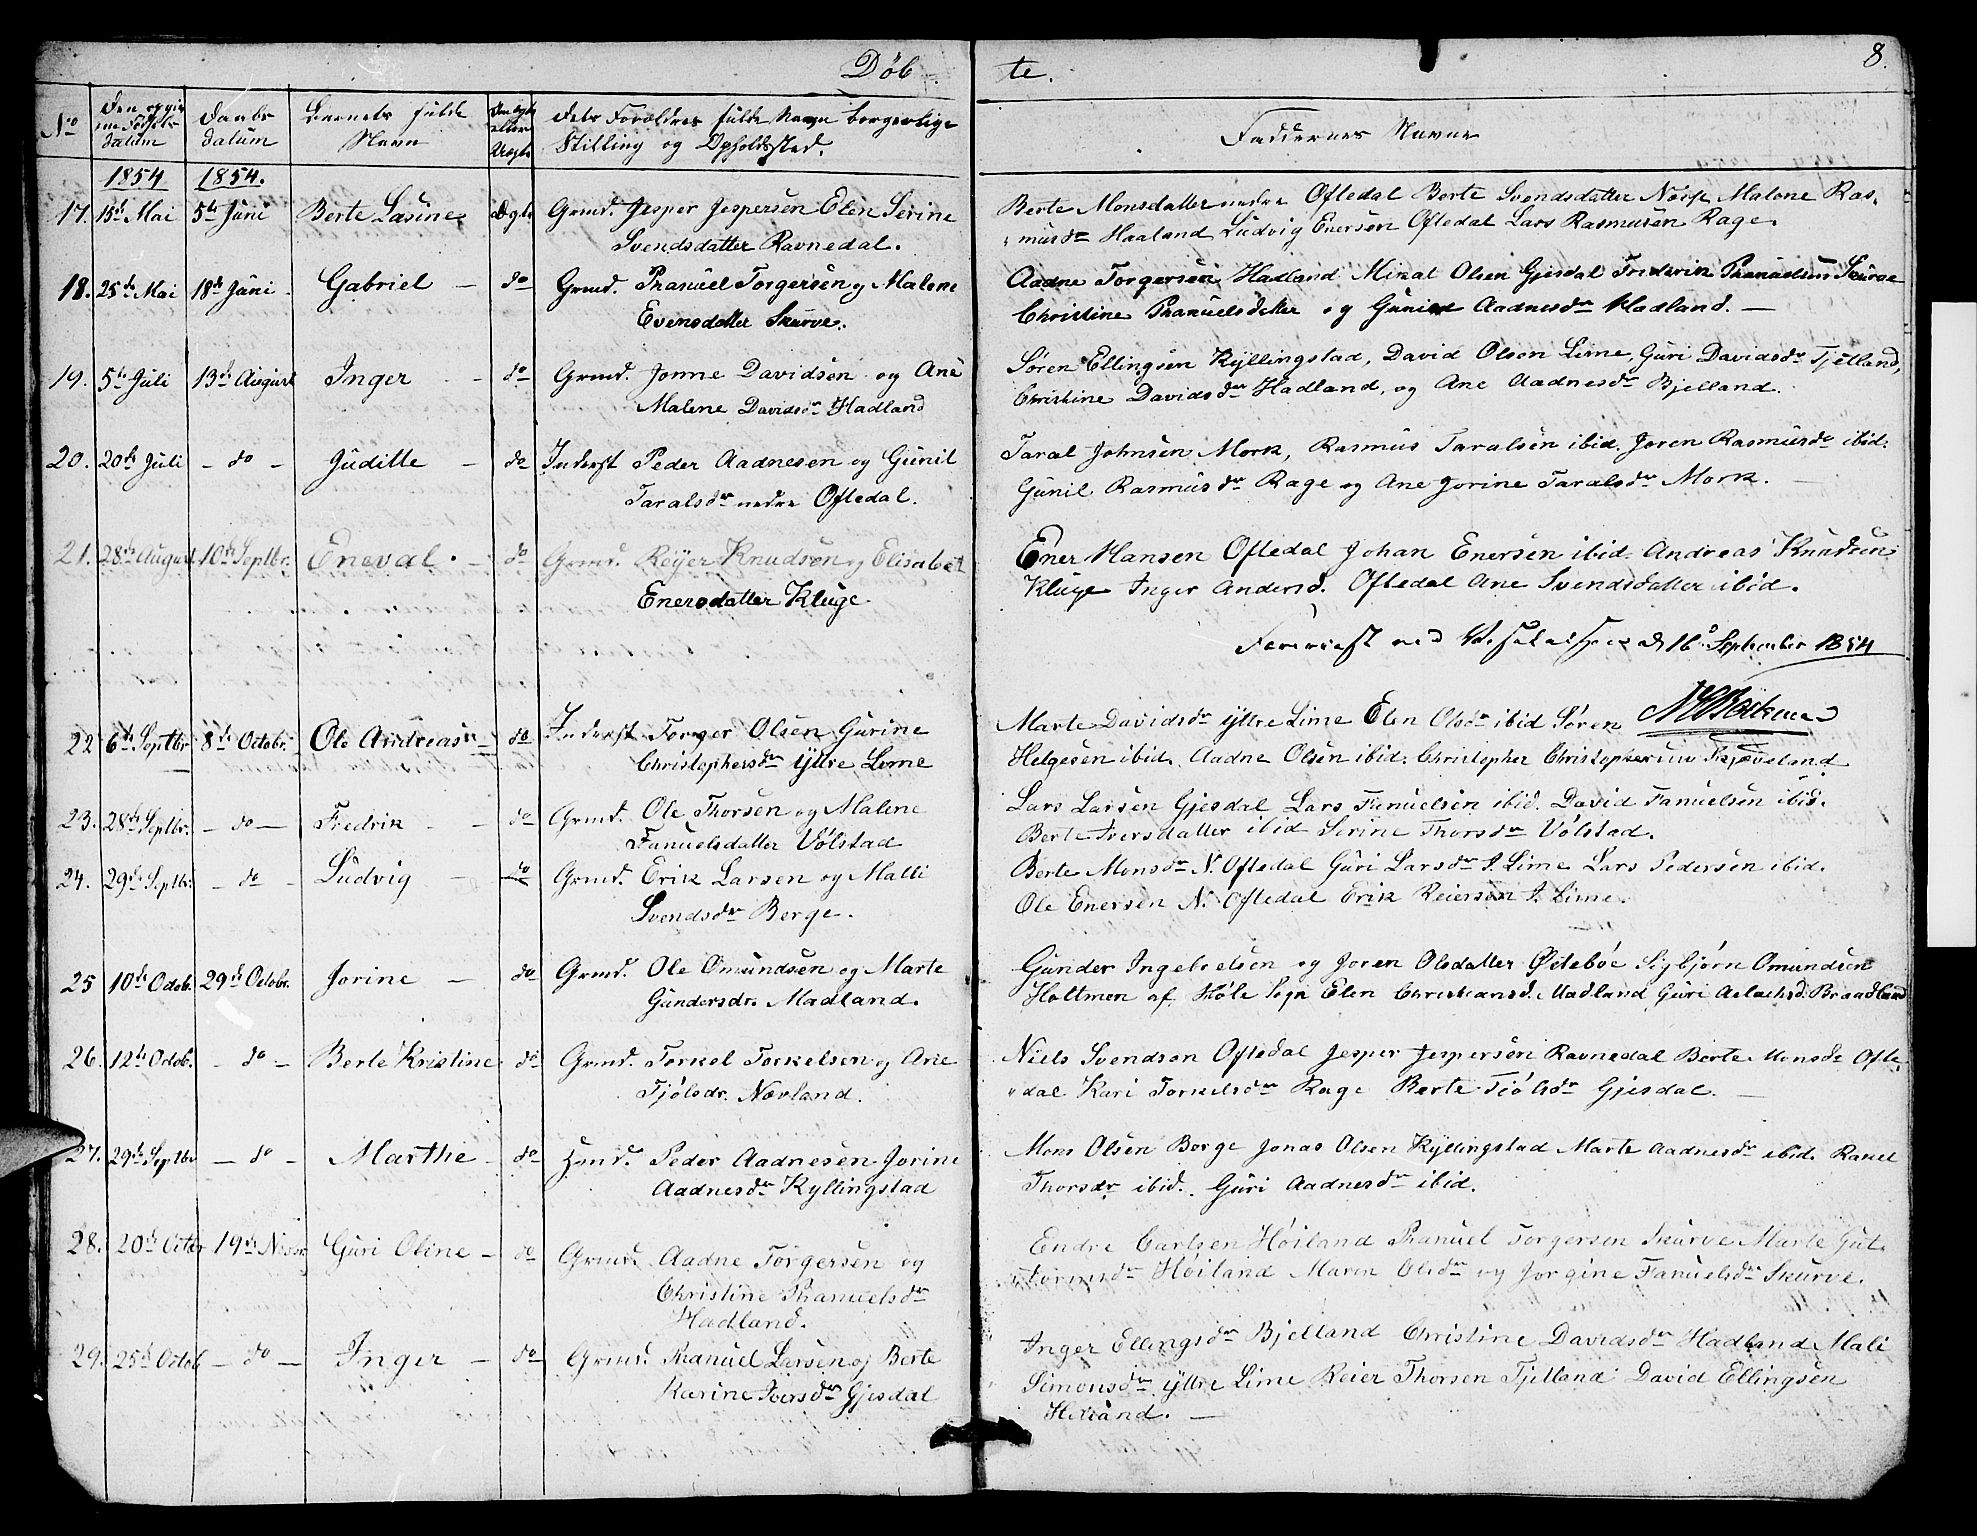 Døb
te.
8.
No
Den og
Fødsels
datum
Daabs
datum
Barnets fulde
Navn
Om ægte
eller
uægte
Dets Forældres fulde Navn borgerlige
Stilling og Opholdssted.
Faddernes Navne
1854
1854.
17. 15de Mai 5te Juni Berte Lasine Ægte Grmd. Jesper Jespersen Elen Serine
Svendsdatter Ravnedal.
Berte Monsdatter nedre Oftedal Berte Svendsdatter Malene Ras-
musdr Haaland Ludvig Enersen Oftedal Lars Rasmusen Rage.
18. 25de Mai 18de Juni Gabriel — do Grmd. Phanuel Torgersen og Malene
Evensdatter Skurve.
Aadne Torgersen Hadland Mikal Olsen Gjesdal Fredrik Phanuelsen Skurve
Christine Phanuelsdatter og Guniel Aadnesdr Hadland. —
19. 5te Juli 13de August Inger - do Grmd. Jonne Davidsen og Ane
Malene Davidsdr Hadland
Søren Ellingsen Kyllingstad, David Olsen Lime, Guri Davidsdr Tjelland,
Christine Davidsdr Hadland, og Ane Aadnesdr Bjelland.
20. 20de Juli - do - Juditte - do Inderst Peder Aadnesen og Gunil
Taralsdr nedre Oftedal.
Taral Johnsen Mork, Rasmus Taralsen ibid. Joren Rasmusdr ibid.
Gunil Rasmusdr Rage og Ane Jorine Taralsdr Mork. —
21. 28de August 10de Septbr. Eneval. - do Grmd. Reyer Knudsen og Elisabet
Enersdatter Kluge
Ener Hansen Oftedal Johan Enersen ibid. Andreas Knudsen
Kluge Inger Andersd. Oftedal Ane Svendsdatter ibid.
Foreviist ved Visitatsen d 16 September 1854
22 6te Septbr 8de Octobr. Ole Andreas - do Inderst Torger Olsen Gurine
Christophersdr Yttre Lime
Marte Davidsdr yttre Lime Elen Olsdr ibid Søren
Helgesen ibid. Aadne Olsen ibid. Christopher Christophersen Skjæveland
23. 28de Septbr. - do - Fredrik - do Grmd. Ole Thorsen og Malene
Fanuelsdatter Vølstad
Lars Larsen Gjesdal Lars Fanuelsen ibid. David Fanuelsen ibid.
Berte Iversdatter ibid Serine Thorsdr Vølstad.
24. 29de Septbr. - do - Ludvig - do Grmd. Erik Larsen og Malli
Svendsdr Berge.
Berte Monsdr N. Oftedal Guri Larsdr I. Lime Lars Pedersen ibid.
Ole Enersen N. Oftedal Erik Reiersen I. Lime.
25 10de Octob. 29de Octobr. Jorine — do Grmd. Ole Omundsen og Marte
Gundersdr. Madland.
Gunder Ingebretsen og Joren Olsdatter Østebøe Sigbjørn Omundsen
Holtmen af Høle Sogn Elen Christiansd. Madland Guri Aslachsd. Braadland
26. 12te Octob. - do - Berte Kristine do Grmd. Torkel Torkelsen og Ane
Tjølsdr. Nævland.
Niels Svendsen Oftedal Jesper Jespersen Ravnedal Berte Monsdr Ofte-
dal Kari Torkelsdr Rage Berte Tjølsdr Gjesdal. —
27. 29de Septbr - do - Marthe - do Grmd. Peder Aadnesen Jorine
Aadnesdr Kyllingstad
Mons Olsen Berge Jonas Olsen Kyllingstad Marte Aadnesdr ibid. Rakel
Thorsdr ibid. Guri Aadnesdr ibid.
28. 20de Octbr 19de Novbr Guri Oline - do Grmd. Aadne Torgersen og
Christine Phanuelsdr
Hadland.
Endre Carlsen Høiland Phanuel Torgersen Skurve Marte Gut-
tormsdr Høiland Maren Olsdr og Jorgine Fanuelsdr Skurve.
29. 25de Octob - do - Inger - do Grmd. Phanuel Larsen og Berte
Karine Iversdr Gjesdal
Inger Ellingsdr Bjelland Christine Davidsdr Hadland Mali
Simonsdr yttre Lime Reier Thorsen Tjelland David Ellingsen
Hetland. —